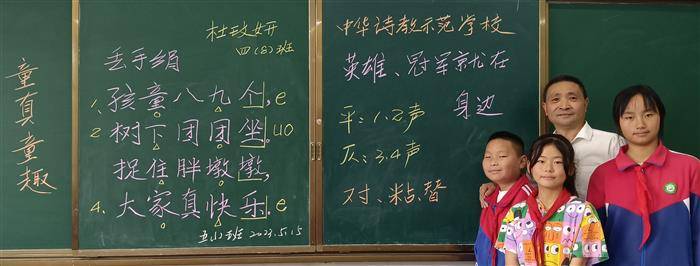 童真童趣
杜玟妍
四(8)班
丢手绢
1. 孩童八九个, e
2 树下团团坐. uo
捉住胖墩墩,
4. 大家真快乐. e
五(1)班 2023.5.15
中华诗教示范学校
英雄、冠军就在
身边
平:1.2声
仄:3.4声
对、粘、替